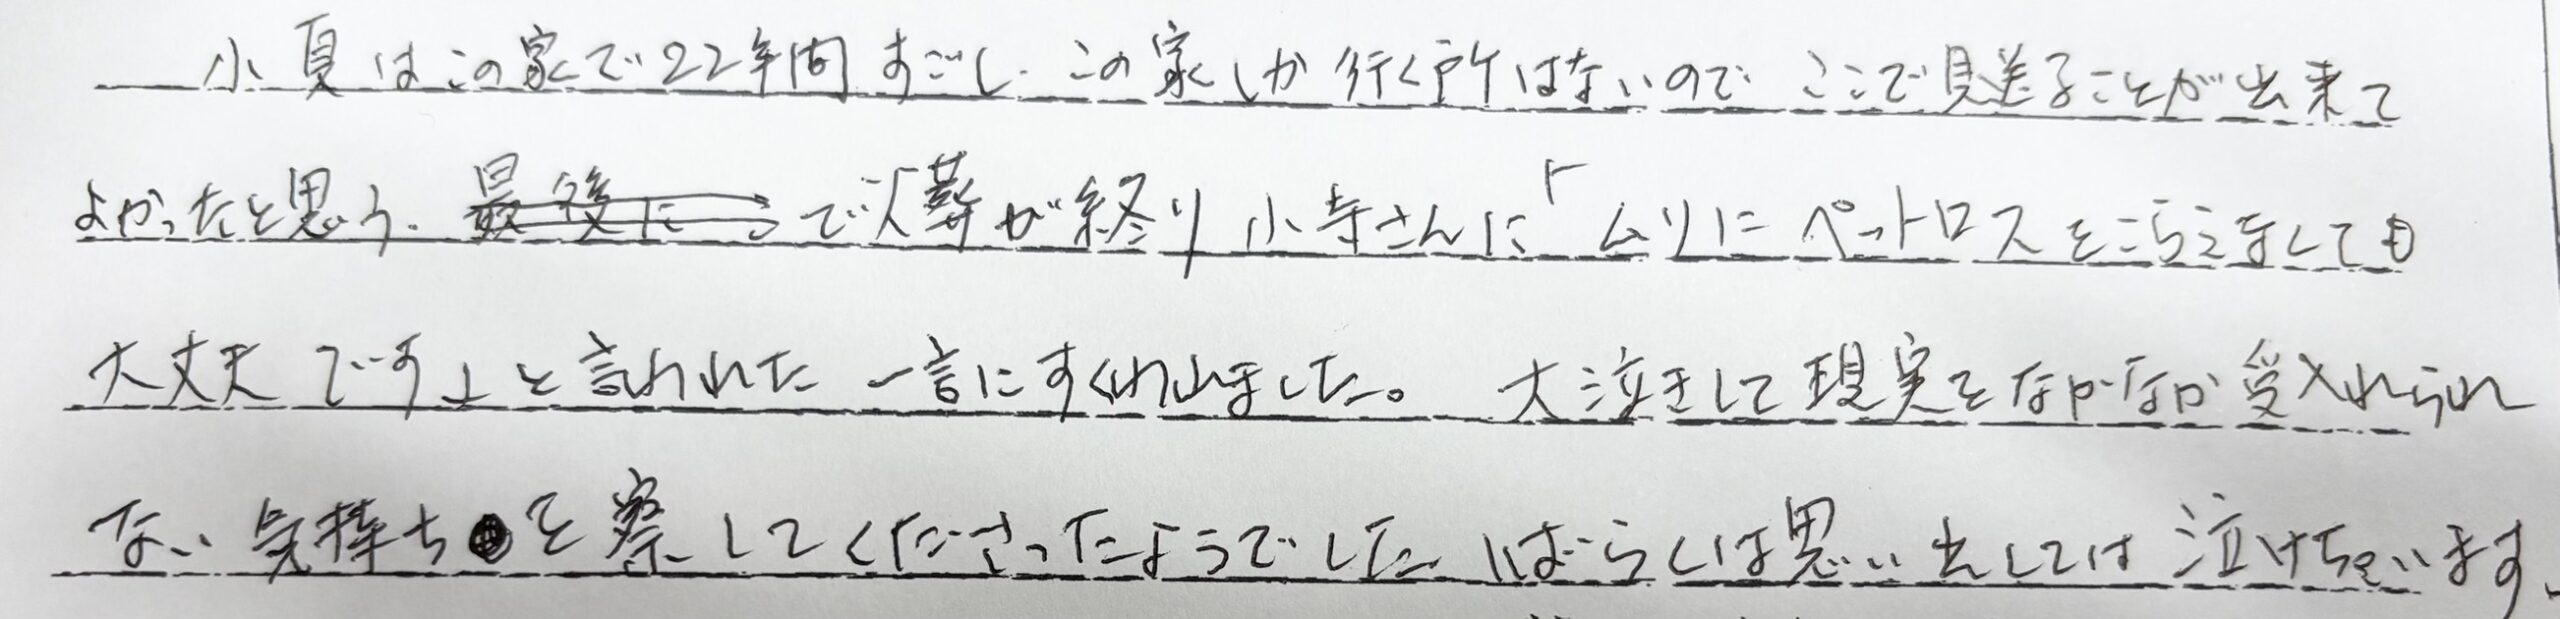 小夏はこの家で22年間すごし この家しか行く所はないので ここで見送ることが出来て
よかったと思う。最後に で火葬が終り 小寺さんに「ムリにペットロスをこらえなくても
大丈夫です」と言われた 一言にすくわれました。 大泣きして現実をなかなか受入れられ
ない気持ちを察してくださったようでした しばらくは思い出しては泣けちゃいます。